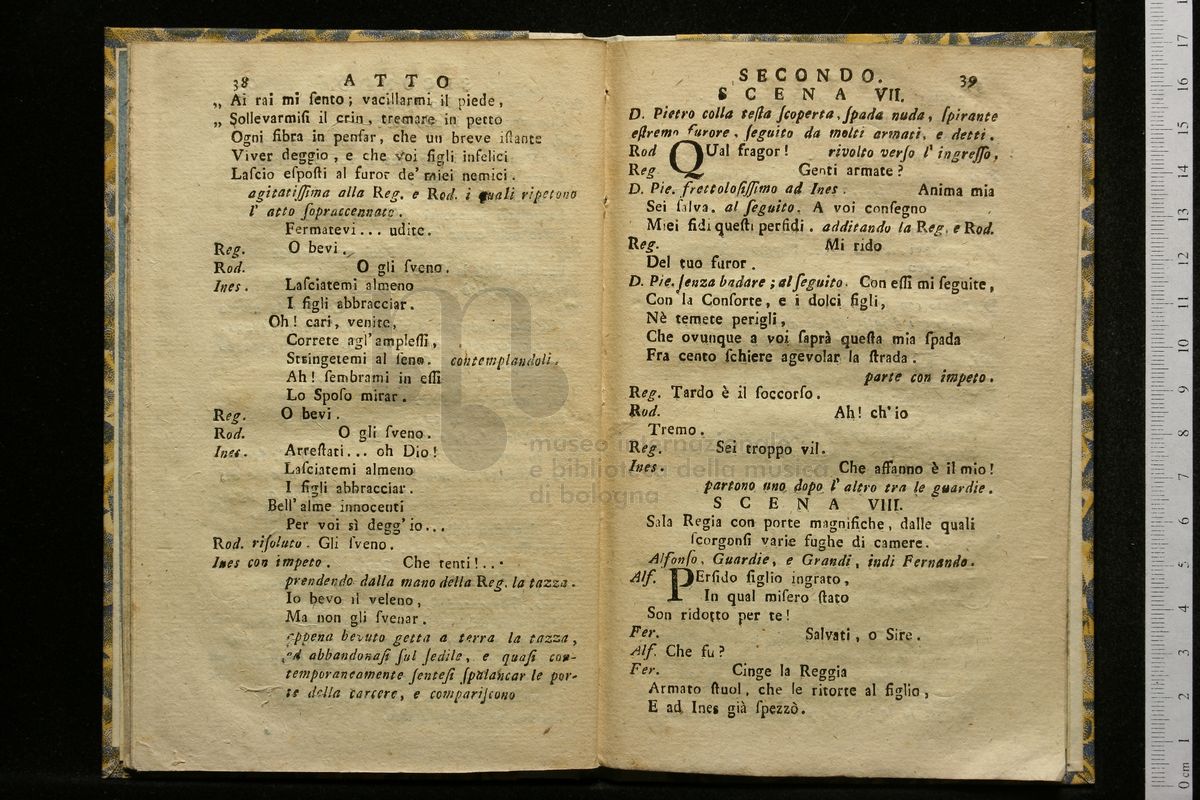 38 ATTO
„ Ai rai mi ſento; vacillarmi il piede,
„ Sollevarmiſi il crin, tremare in petto
Ogni fibra in penſar, che un breve iſtante
Viver deggio, e che voi figli infelici
Laſcio eſpoſti al furor de' miei nemici.
agitatiſſima alla Reg. e Rod. i quali ripetono
l' atto ſopraccennato.
Fermatevi... udite.
Reg. O bevi.
Rod. O gli ſveno.
Ines. Laſciatemi almeno
I figli abbracciar.
Oh! cari, venite,
Correte agl' ampleſſi,
Stringetemi al ſeno. contemplandoli.
Ah! ſembrami in eſſi
Lo Spoſo mirar.
Reg. O bevi.
Rod. O gli ſveno.
Ines. Arreſtati... oh Dio!
Laſciatemi almeno
I figli abbracciar.
Bell' alme innocenti
Per voi sì degg' io...
Rod. riſoluto. Gli ſveno.
Ines con impeto. Che tenti!...
prendendo dalla mano della Reg. la tazza.
Io bevo il veleno,
Ma non gli ſvenar.
appena bevuto getta a terra la tazza,
ed abbandonaſi ſul ſedile, e quaſi con-
temporaneamente ſenteſi ſpalancar le por-
te della carcere, e compariſcono
SECONDO. 39
SCENA VII.
D. Pietro colla teſta ſcoperta, ſpada nuda, ſpirante
eſtremo furore, ſeguito da molti armati, e detti.
Rod QUal fragor! rivolto verſo l' ingreſſo,
Reg Genti armate?
D. Pie. frettoloſiſſimo ad Ines. Anima mia
Sei ſalva. al ſeguito. A voi conſegno
Miei fidi queſti perfidi. additando la Reg. e Rod.
Reg. Mi rido
Del tuo furor.
D. Pie. ſenza badare; al ſeguito. Con eſſi mi ſeguite,
Con la Conſorte, e i dolci figli,
Nè temete perigli,
Che ovunque a voi ſaprà queſta mia ſpada
Fra cento ſchiere agevolar la ſtrada.
parte con impeto.
Reg. Tardo è il ſoccorſo.
Rod. Ah! ch' io
Tremo.
Reg. Sei troppo vil.
Ines. Che affanno è il mio!
partono uno dopo l' altro tra le guardie.
SCENA VIII.
Sala Regia con porte magnifiche, dalle quali
ſcorgonſi varie fughe di camere.
Alfonſo, Guardie, e Grandi, indi Fernando.
Alf. PErfido figlio ingrato,
In qual miſero ſtato
Son ridotto per te!
Fer. Salvati, o Sire.
Alf. Che fu?
Fer. Cinge la Reggia
Armato ſtuol, che le ritorte al figlio,
E ad Ines già ſpezzò.
museo internazionale
e biblioteca della musica
di bologna
0 cm 1 2 3 4 5 6 7 8 9 10 11 12 13 14 15 16 17